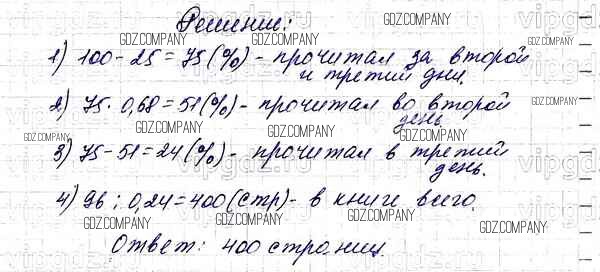 Решение:
1) 100 - 25 = 75 (%) - прочитал за второй
и третий дни.
2) 75 · 0,68 = 51 (%) - прочитал во второй
день
3) 75 - 51 = 24 (%) - прочитал в третий
день.
4) 96 : 0,24 = 400 (стр) - в книге всего.
Ответ: 400 страниц.
GDZ.COMPANY
GDZ.COMPANY
GDZ.COMPANY
GDZ.COMPANY
GDZ.COMPANY
GDZ.COMPANY
GDZ.COMPANY
GDZ.COMPANY
GDZ.COMPANY
GDZ.COMPANY
GDZ.COMPANY
GDZ.COMPANY
GDZ.COMPANY
GDZ.COMPANY